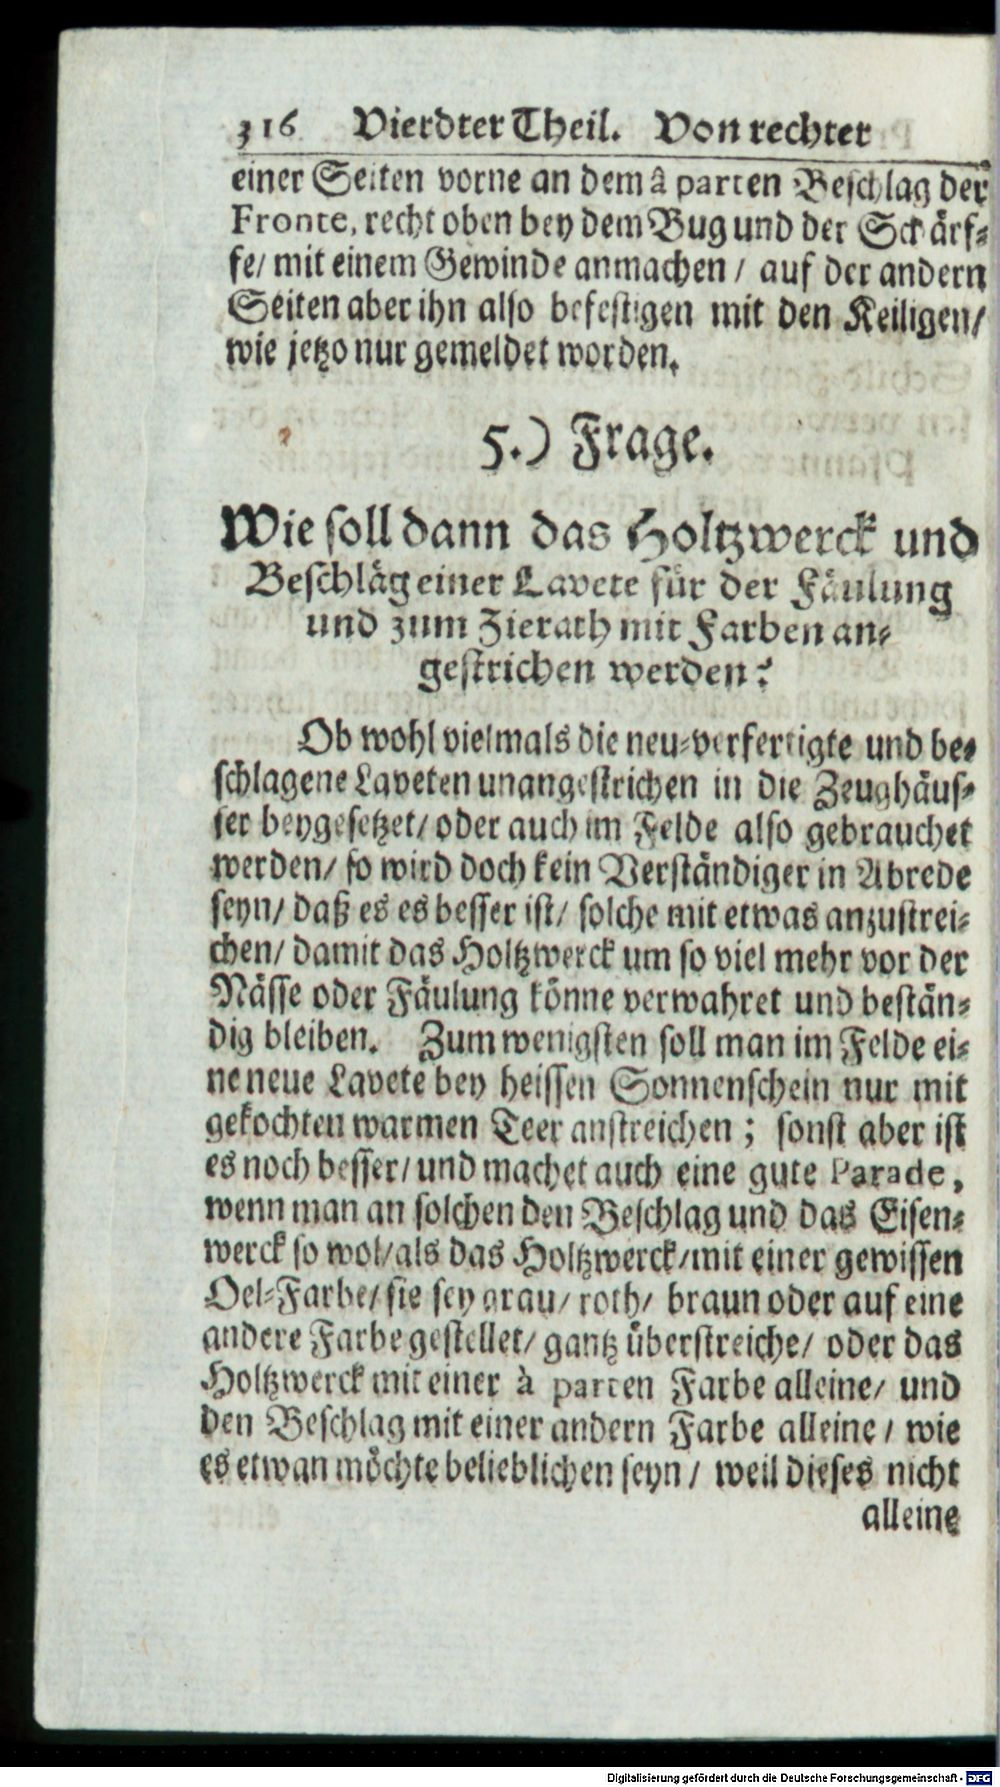 316 Vierdter Theil. Von rechter
einer Seiten vorne an dem â parten Beschlag der
Fronte, recht oben bey dem Bug und der Schärf-
fe/ mit einem Gewinde anmachen / auf der andern
Seiten aber ihn also befestigen mit den Keiligen/
wie jetzo nur gemeldet worden.
5.) Frage.
Wie soll dann das Holtzwerck und
Beschläg einer Lavete für der Fäulung
und zum Zierath mit Farben an-
gestrichen werden?
Ob wohl vielmals die neu-verfertigte und be-
schlagene Laveten unangestrichen in die Zeughäus-
ser beygesetzet/ oder auch im Felde also gebrauchet
werden/ so wird doch kein Verständiger in Abrede
seyn/ daß es es besser ist/ solche mit etwas anzustrei-
chen/ damit das Holtzwerck um so viel mehr vor der
Nässe oder Fäulung könne verwahret und bestän-
dig bleiben. Zum wenigsten soll man im Felde ei-
ne neue Lavete bey heissen Sonnenschein nur mit
gekochten warmen Teer anstreichen ; sonst aber ist
es noch besser/ und machet auch eine gute Parade,
wenn man an solchen den Beschlag und das Eisen-
werck so wol/als das Holtzwerck/mit einer gewissen
Oel-Farbe/ sie sey grau/ roth/ braun oder auf eine
andere Farbe gestellet/ gantz überstreiche/ oder das
Holtzwerck mit einer à parten Farbe alleine/ und
den Beschlag mit einer andern Farbe alleine / wie
es etwan möchte belieblichen seyn / weil dieses nicht
alleine
Digitalisierung gefördert durch die Deutsche Forschungsgemeinschaft - DFG